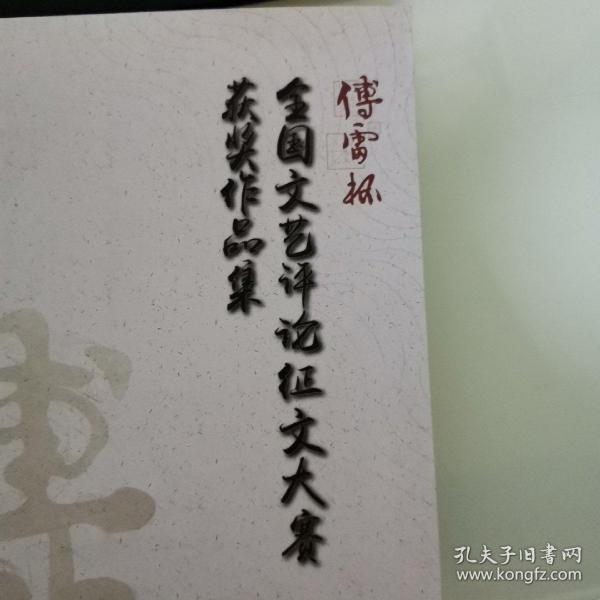 傅雷杯
全国文艺评论征文大赛
获奖作品集
孔夫子旧书网
www.kongfz.com